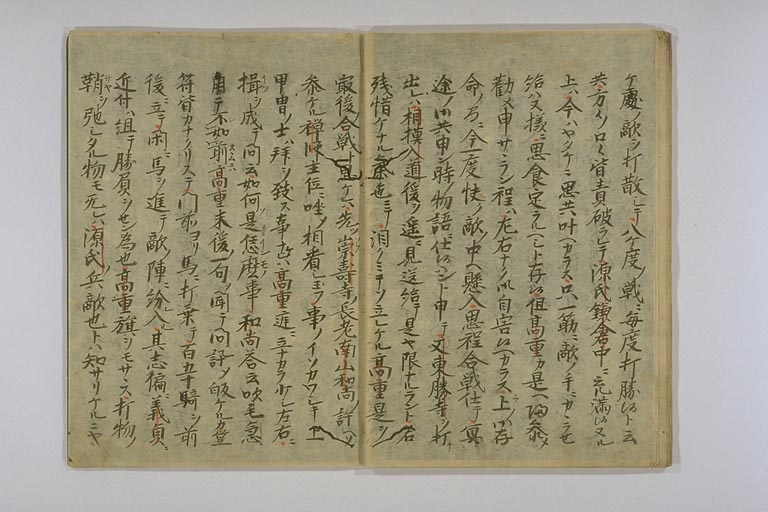 ケ處ノ敵ヲ打散シテ八ケ度ノ戦ニ毎度打勝候ト云
共方々ノ口々皆責破ラレテ源氏鎌倉中ニ充満候ヌル
上ハ今ハヤタケニ思共叶ヘカラス只一筋ニ敵ノ手ニカヽラせ
給ハヌ様ニ思食定ラルヘシト存候但高重カ是ヘ歸参メ
勧メ申サヽラン程ハ左右ナク御自害候ヘカラス上ノ御存
命ノ間ニ今度快ク敵ノ中ヘ懸入思程合戦仕テ冥
途ノ御共申ン時ノ物語ニ仕候ハント申テ又東勝寺ヲ打
出レハ相模入道後ヲ遥ニ見送給テ是ヤ限ナルラント名
残惜ケナル氣色ニテ泪クミテソ立レケル高重是ヲ
最後合戦ト思ケレハ先ツ崇壽寺ノ長老南山和尚ノ許ヘソ
参ケル禅師主位ニ坐メ相看シ玉フ事ノイソカワシキ上
甲冑ノ士ハ拜ヲ致ス事无レハ高重庭ニ立ナカラ少シ左右ニ
揖ヲ成テ問云如何是恁麼事和尚答云吹毛急
用テ不如前高重末後ノ一句ヲ聞テ問訊メ皈ケルカ笠
符皆カナクリステヽ門前ヨリ馬ニ打乗テ百五十騎ヲ前
後ニ立テ閑ニ馬ヲ進テ敵陣ニ紛入其志偏ニ義貞ニ
近付ハ組テ勝負ヲせン為也高重旗ヲモサヽス打物ノ
鞘ヲ弛シタル物モ无レハ源氏ノ兵敵也トハ知サリケルニヤ